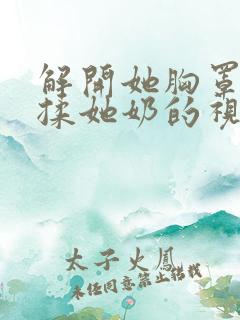 解開她胸罩
揉她奶的視
太子火鳳
未任同意禁止搭载